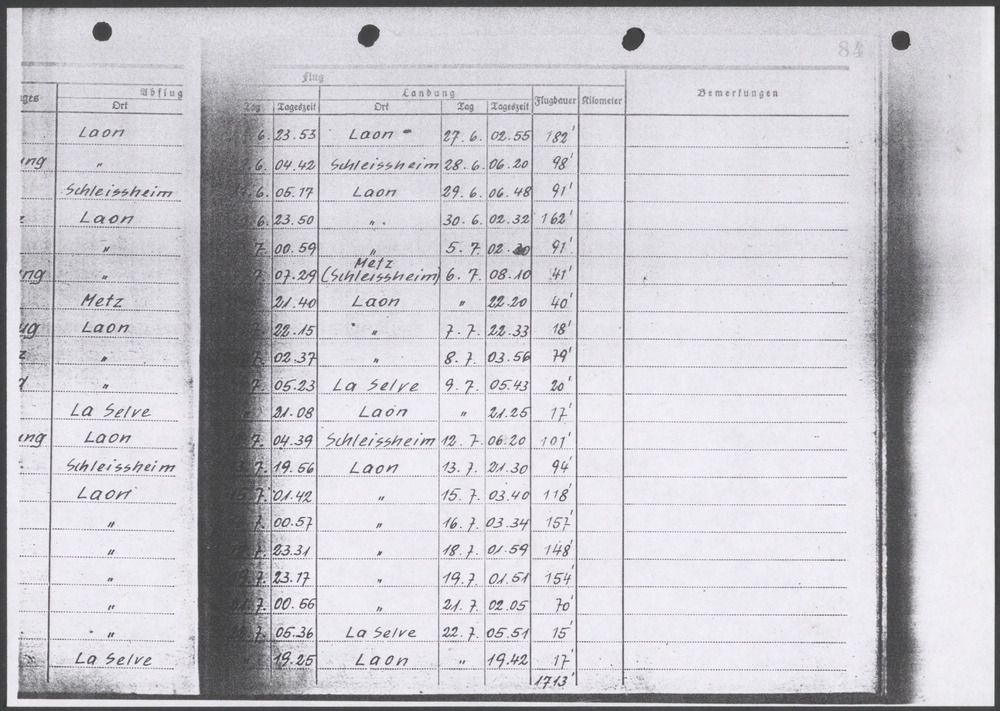 84
Flug
Abflug Landung Bemerkungen
Ort Tag Tageszeit Ort Tag Tageszeit Flugdauer Kilometer
Laon 6. 23.53 Laon 27. 6. 02.55 182'
ung " 6. 04.42 Schleissheim 28. 6. 06.20 98'
Schleissheim 6. 05.17 Laon 29. 6. 06.48 91'
Laon 6. 23.50 " 30. 6. 02.32 162'
" 7. 00.59 " 5. 7. 02. 91'
Metz
ung " 7. 07.29 (Schleissheim) 6. 7. 08.10 41'
Metz 21.40 Laon " 22.20 40'
ug Laon 7. 22.15 " 7. 7. 22.33 18'
" 7. 02.37 " 8. 7. 03.56 79'
" 7. 05.23 La Selve 9. 7. 05.43 20'
La Selve " 21.08 Laon " 21.25 17'
ung Laon 7. 04.39 Schleissheim 12. 7. 06.20 101'
Schleissheim 7. 19.56 Laon 13. 7. 21.30 94'
Laon 15. 7. 01.42 " 15. 7. 03.40 118'
" 7. 00.57 " 16. 7. 03.34 157'
" 7. 23.31 " 18. 7. 01.59 148'
" 7. 23.17 " 19. 7. 01.51 154'
" 7. 00.56 " 21. 7. 02.05 70'
" 7. 05.36 La Selve 22. 7. 05.51 15'
La Selve " 19.25 Laon " 19.42 17'
1713'